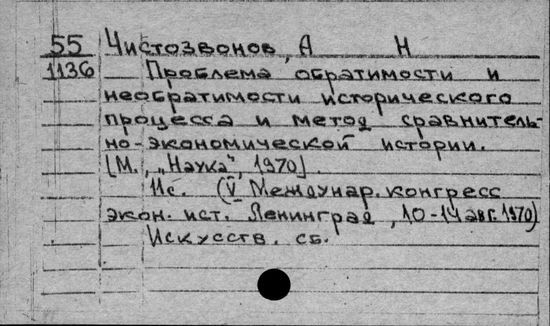 55 Чистозвонов, А Н
1136 Проблема обратимости и
необратимости исторического
процесса и метод сравнитель-
но-экономической истории.
[М., „Наука", 1970].
11с. (V Междунар. конгресс
экон. ист. Ленинград, 10-14 авг. 1970)
Искусств. сб.